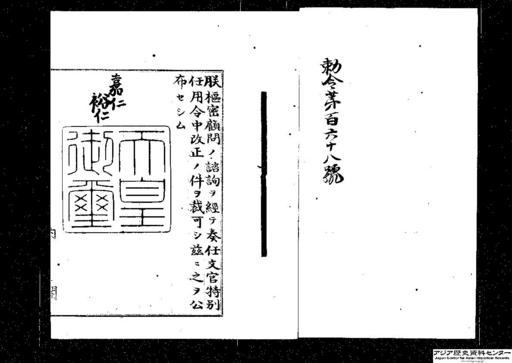 勅令第百六十八號
朕樞密顧問ノ諮詢ヲ經テ奏任文官特別
任用令中改正ノ件ヲ裁可シ茲ニ之ヲ公
布セシム
嘉仁
裕仁
天皇
御璽
内閣
アジア歴史資料センター
Japan Center for Asian Historical Records